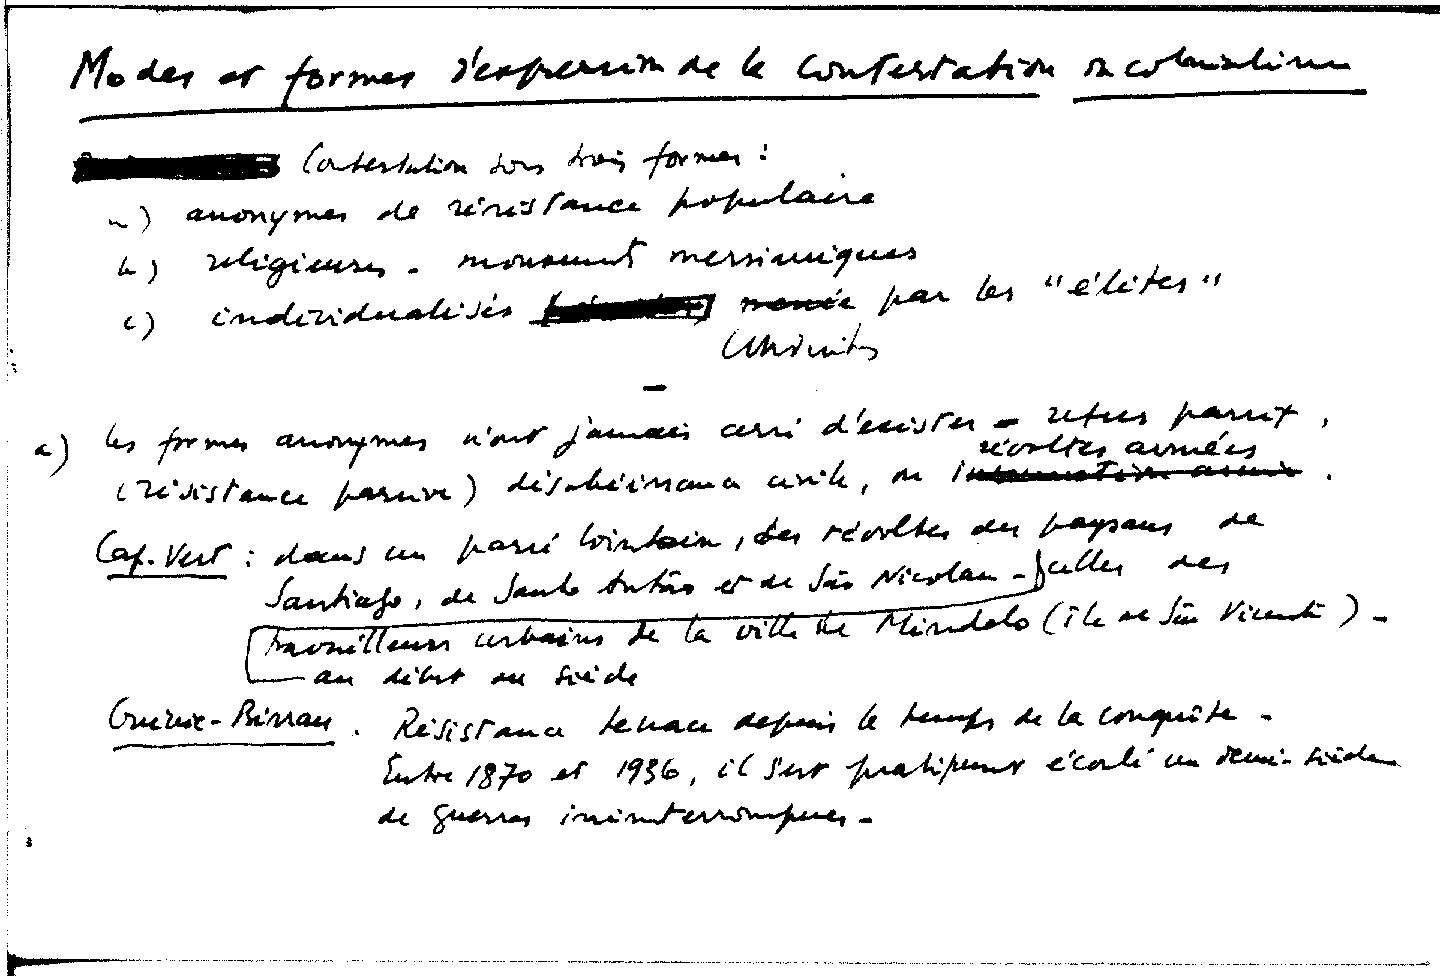 Modes et formes d'expression de la contestation du colonialisme
Contestation sous trois formes :
a) anonymes de résistance populaire
b) religieuses - mouvement messianiques
c) individualisés menée par les "élites"
conduites
a) les formes anonymes n'ont jamais cessé d'exister - refus passif,
révoltes armées
(résistance passive) désobéissance civile, ou insurrection armée.
Cap-Vert : dans un passé lointain, les révoltes des paysans de
Santiago, de Santo Antão et de São Nicolau - celles des
travailleurs urbains de la ville de Mindelo (île de São Vicente) -
au début du siècle
Guinée-Bissau. Résistance tenace depuis le temps de la conquête -
Entre 1870 et 1936, il s'est pratiquement écoulé un demi-siècle
de guerres ininterrompues -